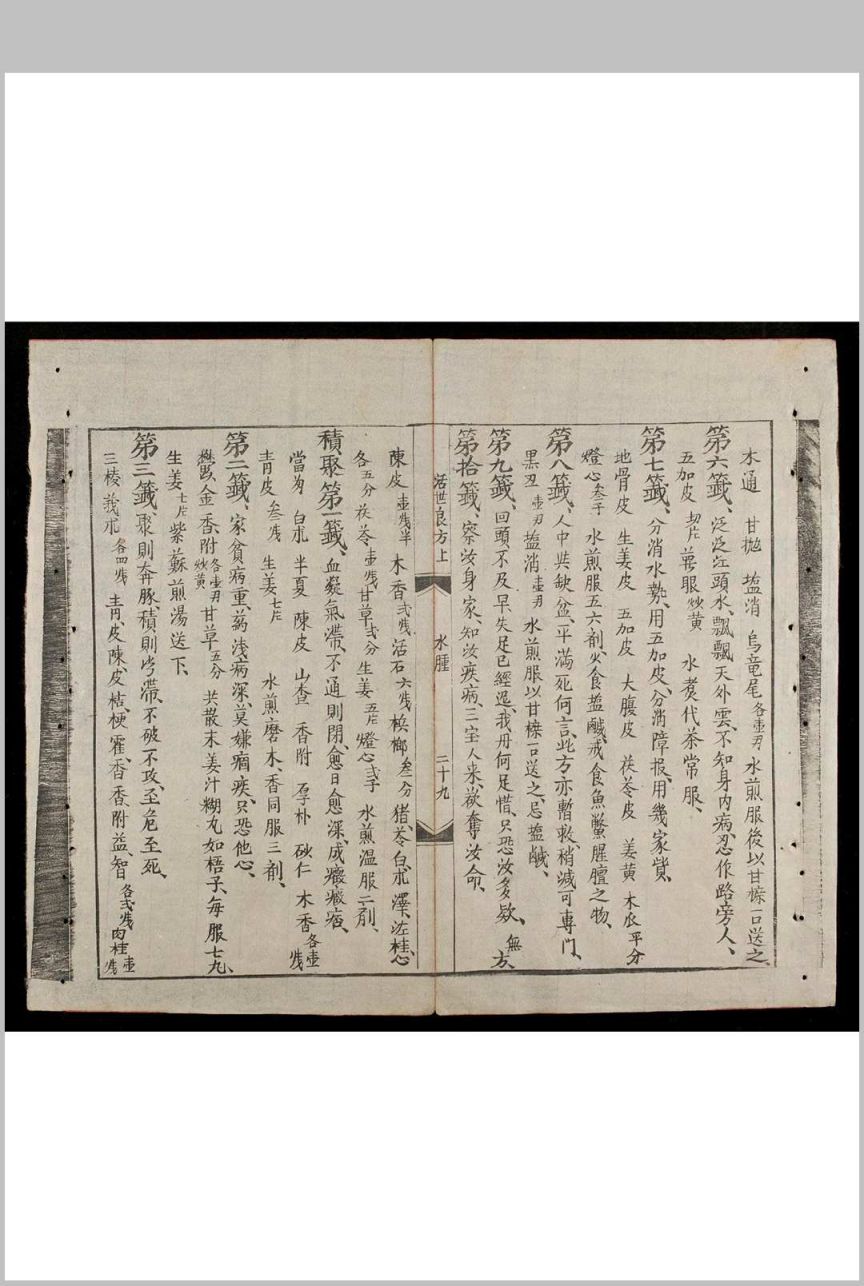 木通 甘拋 塩消 烏竜尾各壹刃水煎服後以甘樜一口送之、
第六籤、泛泛江頭水、飄飄天外雲、不知身内病、忍作路旁人、
五加皮切片 萆眼炒黄 水煑代茶常服、
第七籤、分消水勢、用五加皮、分消障报、用幾家貲、
地骨皮 生姜皮 五加皮 大腹皮 茯苓皮 姜黄 木瓜平分
燈心叁子 水煎服五六剤、少食塩鹹、戒食魚鱉腥膻之物、
第八籤、人中共缺盆、平滿死何言、此方亦暫救、稍減可専門、
黒丑壹刃塩消壹刃水煎服以甘樜一口送之、忌塩鹹、
第九籤、回頭不及早、失足已經遲、我丹何足惜、只恐汝多欵、無方、
第拾籤、察汝身家、知汝疾病、三宝人来、欲奪汝命、
活世良方上 水腫 二十九
陳皮壹戋半 木香弍戋 活石六戋 梹榔叁分 猪苓 白朮 澤泻 桂心
各五分茯苓壹戋甘草弍分生姜五片燈心弍子 水煎温服二剤、
積聚第一籤、血凝氣滯、不通則閉、愈日愈深、成癥癥痃、
當为 白朮 半夏 陳皮 山查 香附 厚朴 砂仁 木香各壹戋
青皮叁戋 生姜七片 水煎磨木、香同服三剤、
第二籤、家貧病重、葯浅病深、莫嫌痼疾、只恐他心、
欝金香、附各壹刃炒黄甘草五分 共散末姜汁糊丸如梧子、每服七九、
生姜七片紫蘇煎湯送下、
第三籤、聚則奔豚、積則痞滯、不破不攻、至危至死、
三棱 莪朮各四戋 青、皮陳、皮桔、梗霍、香香、附益、智各弍戋肉桂壹戋